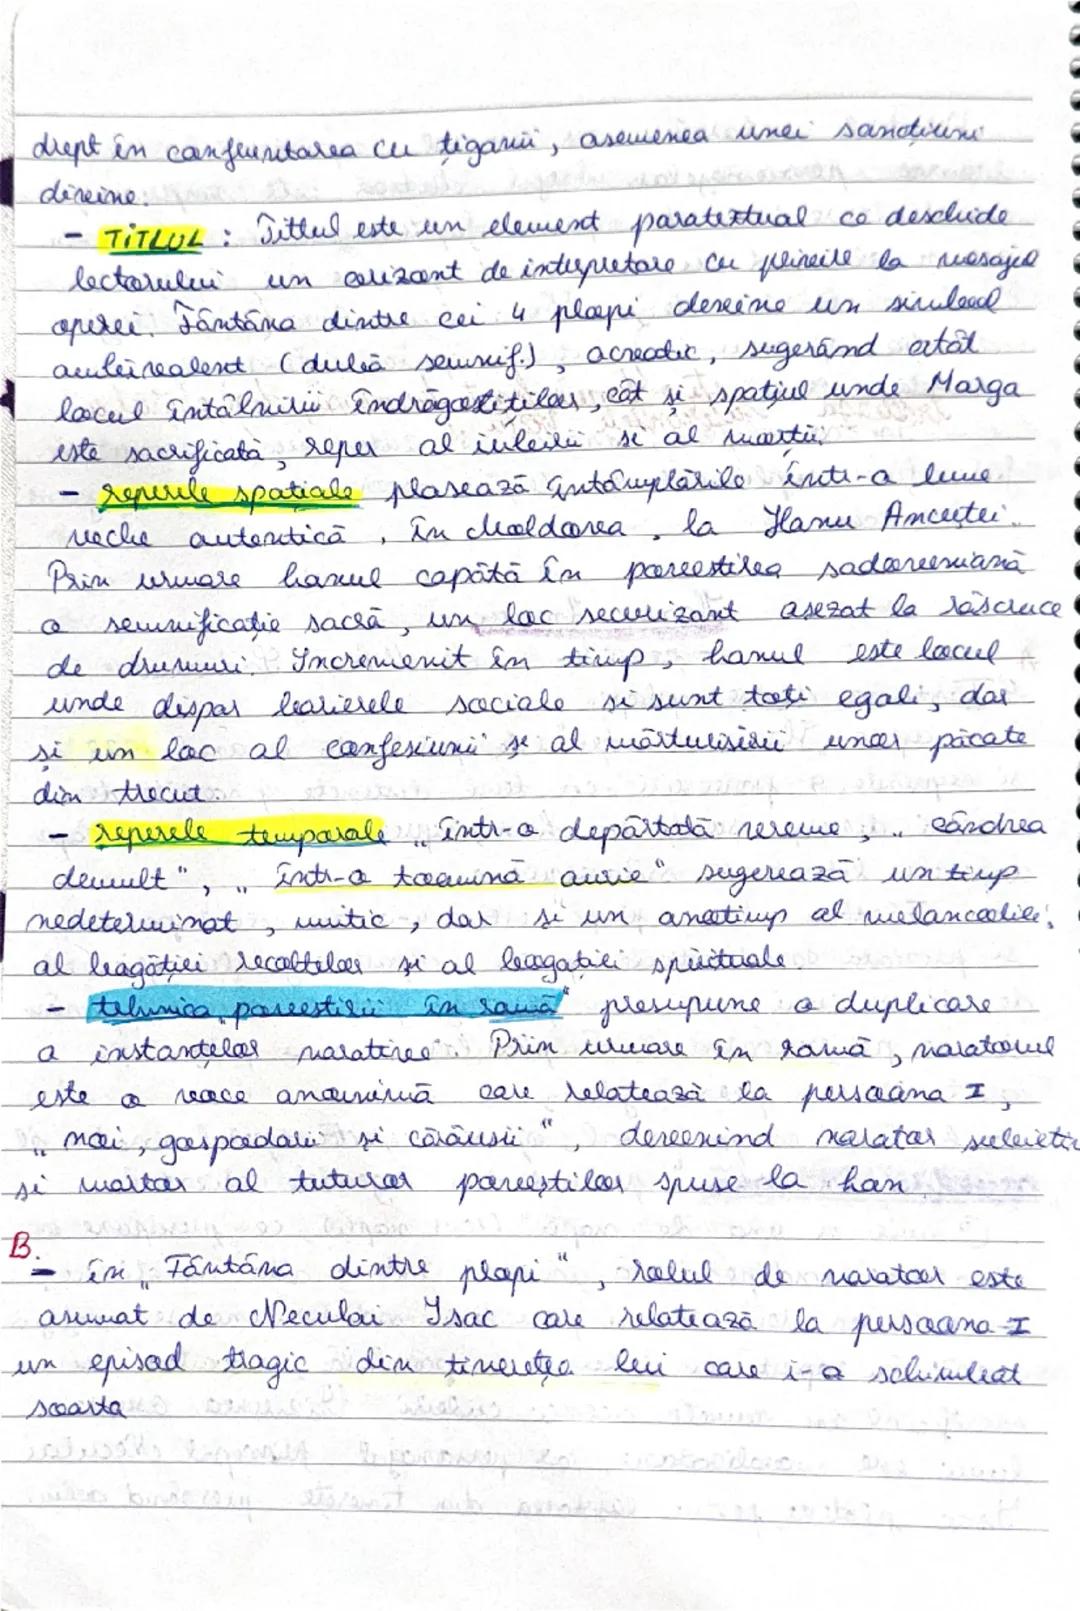 drept în confruntarea cu țiganii, asemenea unei sancțiuni
divine.
- TITLUL : Titlul este un element paratextual ce deschide
lectorului un orizont de interpretare cu privire la mesajul
operei. Fântâna dintre cei 4 plopi devine un simbol
ambivalent (dublă semnif.), acvatic, sugerând atât
locul întâlnirii îndrăgostiților, cât și spațiul unde Marga
este sacrificată, reper al iubirii și al morții;
- reperele spațiale plasează întâmplările într-o lume
veche autentică, în Moldova, la Hanu Ancuței.
Prin urmare hanul capătă în povestirea sadoveniană
o semnificație sacră, un loc securizant așezat la răscruce
de drumuri. Încremenit în timp, hanul este locul
unde dispar barierele sociale și sunt toți egali, dar
și un loc al confesiunii și al mărturisirii unor păcate
din trecut.
- reperele temporale „într-o depărtată vreme", „cândva
demult", „într-o toamnă aurie" sugerează un timp
nedeterminat, mitic, dar și un anotimp al melancoliei,
al bogăției recoltelor și al bogăției spirituale.
- tehnica „povestirii în ramă" presupune o duplicare
a instanțelor narative. Prin urmare în ramă, naratorul
este o voce anonimă care relatează la persoana I,
„noi, gospodarii și cărăușii", devenind narator subiectiv
și martor al tuturor poveștilor spuse la han
B.
- în „Fântâna dintre plopi", rolul de narator este
asumat de Neculai Isac care relatează la persoana I
un episod tragic din tinerețea lui care i-a schimbat
soarta